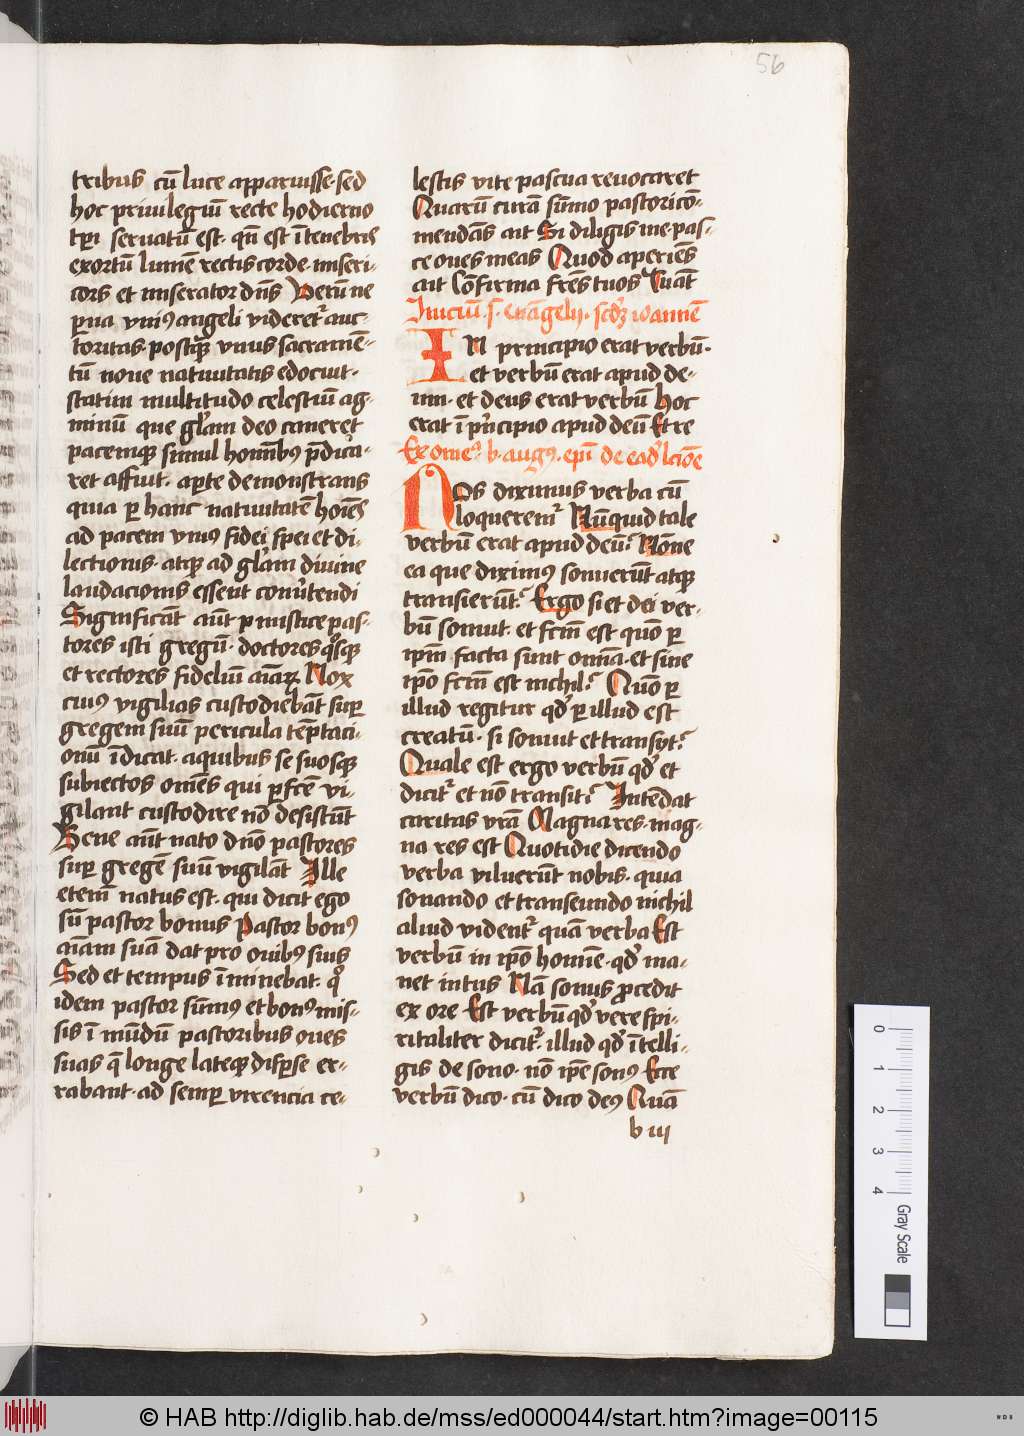 56
tribus cū luce apparuisse·sed
hoc priuilegiū recte hodierno
tpī seruatū est· qn̄ est ī tenebris
exortū lumē rectis corde· miseri-
cors et miserator dn̄s Verū ne
parua vniꝰ angeli videret᷑ auc-
toritas· postq̄ꝫ vnus sacramē-
tū noue natiuitatis edocuit·
statim multitudo celestiū ag-
minū que gl̄am deo caneret
pacemqꝫ simul hoīnibꝰ p̄dica-
ret affuit· aperte demonstrans
quia ꝑ hanc natiuitatē hoīes
ad pacem vniꝰ fidei spei et di-
lectionis· atqꝫ ad gl̄am diuine
laudacionis essent conu̓tendi
Significāt aūt
mistice pas-
tores isti gregū· doctores qōsqꝫ
et rectores fideliū aīaꝝ Nox
cuiꝰ vigilias custodiebāt suꝑ
gregem suū pericula tēptaci-
onū īdicat· a quibus se suosqꝫ
subiectos om̄es qui ꝑfc̄e vi-
gilant custodire nō desistūt
Bene aūt nato dn̄o pastores
suꝑ gregē suū vigilāt Ille
etem̄ natus est· qui dicit ego
sū pastor bonus Pastor bonꝰ
aīam suā dat pro ouibꝰ suis
Sed et tempus īminebat· qͦ
idem pastor sūmꝰ et bonꝰ mis-
sis ī mūdū pastoribus oues
suas q̄ longe lateqꝫ disꝑse er-
rabant· ad semꝑ virencia ce-
lestis vite pascua reuocaret
Quarū curā sūmo pastori cō-
mendās ait Si diligis me· pas-
ce oues meas Quod aperiēs
ait Cōfirma fr̄es tuos Euāḡ
Iniciū· s· ewāgelij· scd̓ꝫ ioannē
IN principio erat verbū·
et verbū erat apud de-
um· et deus erat verbū hoc
erat ī pͥncipio apud deū Et re
Ex omeꝰ· b· augꝰ· epī de eād̓ lc̄iōe
NOs diximus verba cū
loqueremͬ Nūquid tale
verbū erat apud deū? Nōne
ea que diximꝰ sonuerūt atqꝫ
transierūt? Ergo si et dei ver-
bū sonuit· et fcm̄ est quō ꝑ
ip̄m facta sunt om̄ia· et sine
ip̄o fcm̄ est nichil? Quō ꝑ
illud regitur qd̓ ꝑ illud est
creatū· si sonuit et transijt?
Quale est ergo verbū qd̓ et
dicit᷑ et nō transit? Intēdat
caritas vr̄a Magna res· mag-
na res est Quotidie dicendo
verba viluerūt nobis· quia
sonando et transeundo nichil
aliud vident᷑ quā verba Est
verbū in ip̄o homīe· qd̓ ma-
net intus Nā sonus ꝓcedit
ex ore Est verbū qd̓ vere spi-
ritaliter dicit᷑· illud qd̓ ītelli-
gis de sono· nō ip̄e sonꝰ Ecce
verbū dico· cū dico deꝰ Quā
b iij
0 1 2 3 4
Gray Scale
© HAB http://diglib.hab.de/mss/ed000044/start.htm?image=00115